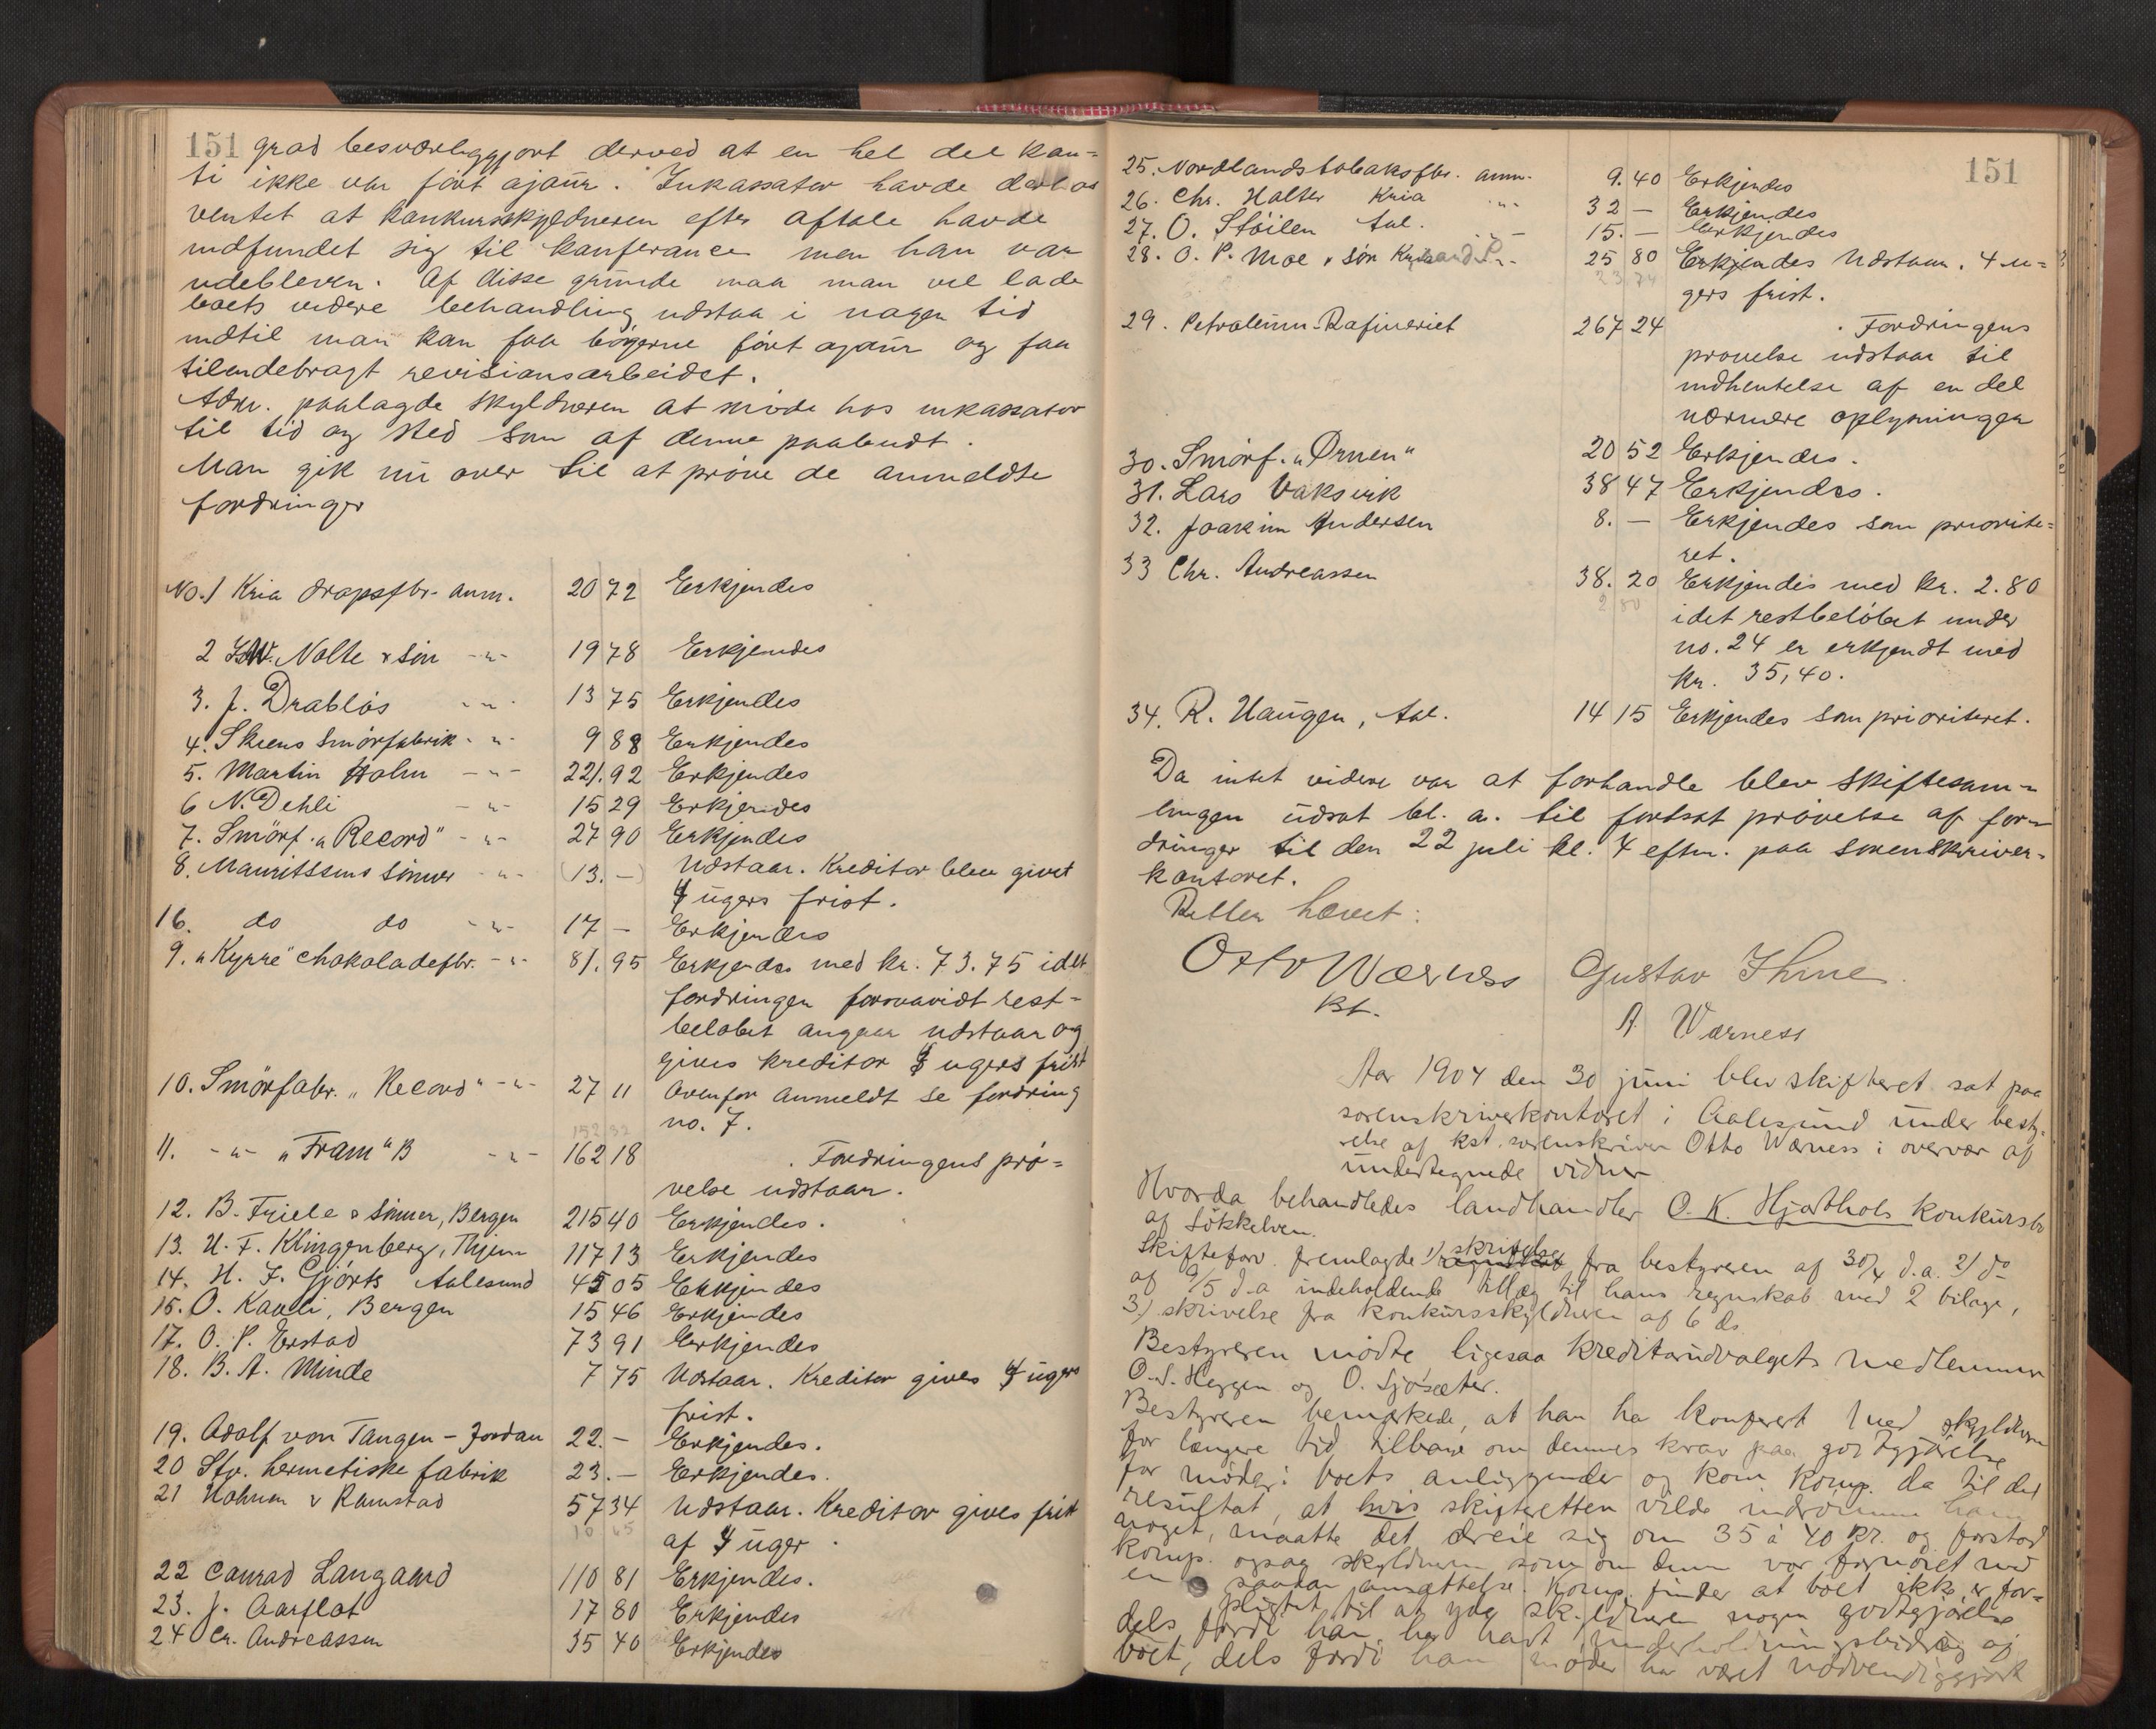 151 grad besværliggjort derved at en hel del kon-
ti ikke var ført ajaur. Inkassator havde derhos
ventet at konkursskyldneren efter aftale havde
indfundet sig til konferance men han var
udebleven. Af disse grunde maa man vel lade
boets videre behandling udstaa i nogen tid
indtil man kan faa bøgerne ført ajaur og faa
tilendebragt revisionsarbeidet.
Adm. paalagde skyldneren at møde hos inkassator
til tid og sted som af denne paabudt.
Man gik nu over til at prøve de anmeldte
fordringer
No. 1 Kria dropsfbr. anm. 20 72 Erkjendes
2 W. Nolte & søn -"- 19 78 Erkjendes
3. J. Drabløs -"- 13 75 Erkjendes
4. Skiens Smørfabrik -"- 9 88 Erkjendes
5. Martin Holm -"- 221.92 Erkjendes
6 N. Dehli -"- 15 29 Erkjendes
7. Smørf. "Record" -"- 27 90 Erkjendes
8. Mauritssens sønner -"- (13.-) Udstaar. Kreditor blev givet
4 ugers frist.
16. do do -"- 17 - Erkjendes
9. "Kyrre" chokoladefbr. -"- 81.95 Erkjendes med kr. 73.75 idet
fordringen forsaavidt rest-
beløbet angaar udstaar og
gives kreditor 4 ugers frist
10. Smørfabr. "Record" -"- 27 11 Ovenfor anmeldt se fordring
no. 7.
11. -"- "Fram" B -"- 162 18 . Fordringens prø-
velse udstaar.
12. B. Friele & sønner, Bergen 215 40 Erkjendes.
13. U. F. Klingenberg, Thjem 117 13 Erkjendes
14. H. J. Gjørts Aalesund 45 05 Erkjendes
15. O. Kavli, Bergen 15 46 Erkjendes
17. O. P. Erstad 73 91 Erkjendes
18. B. A. Minde 7 75 Udstaar. Kreditor gives 4 ugers
frist.
19. Adolf von Tangen - Jordan 22.- Erkjendes.
20 Stv. hermetiske fabrik 23.- Erkjendes.
21 Holmen & Ramstad 57 34 Udstaar. Kreditor gives frist
10 65
af 4 uger.
22 Conrad Langaard 110 81 Erkjendes.
23. J. Aarflot 17 80 Erkjendes
24 Cr. Andreassen 35 40 Erkjendes
151
25. Nordlands tobaksfbr. anm. 9.40 Erkjendes
26. Chr. Holter Kria -"- 32 - Erkjendes
27. O. Støilen Aal. -"- 15.- Erkjendes
28. O. P. Moe & søn 25 80 Erkjendes Udstaar. 4 u-
23 74
gers frist.
29. Petroleum-Rafineriet 267 24 . Fordringens
prøvelse udstaar til
indhentelse af en del
nærmere oplysninger
30. Smørf. "Ørnen" 20 52 Erkjendes.
31. Lars Vaksvik 38 47 Erkjendes.
32. Joakim Andersen 8. - Erkjendes som priorite-
ret.
33 Chr. Andreassen 38. 20 Erkjendes med kr. 2.80
2 80
idet restbeløbet under
no. 24 er erkjendt med
kr. 35,40.
34. R. Haugen, Aal. 14 15 Erkjendes som prioriteret.
Da intet videre var at forhandle blev skiftesam-
lingen udsat bl. a. til fortsat prøvelse af for-
dringer til den 22 juli kl. 4 eftm. paa sorenskriver-
kontoret.
Retten hævet:
Otto Wærness Gustav Ihme
kst.
A Værness
Aar 1904 den 30 juni blev skifteret sat paa
sorenskriverkontoret i Aalesund under besty-
relse af kst. sorenskriver Otto Wærness i overvær af
undertegnede vidner
Hvorda behandledes landhandler O. K. Hjorthols konkursbo
af Søkkelven.
Skifteforv. fremlagde 1) skrivelse fra bestyreren af 30/4 d.a. 2) do
af 9/5 d.a indeholdende tillæg til hans regnskab med 2 bilage,
3) skrivelse fra konkursskyldneren af 6 ds
Bestyreren mødte ligesaa kreditorudvalgets medlemmer
O. S. Heggen og O. Sjøsæter.
Bestyreren bemærkede, at han ha konferert med skyldneren
for længere tid tilbage om dennes krav paa godtgjørelse
for møder i boets anliggender og kom komp. da til det
resultat, at hvis skifteretten vilde indrømme ham
noget, maatte det dreie sig om 35 à 40 kr. og forstod
komp. ogsaa skyldneren som om denne var fornøiet med
en saadan ansættelse. Komp. finder at boet ikke er for-
pligtet til at yde skyldneren nogen godtgjørelse
dels fordi han har havt underholdningsbidrag af
boet, dels fordi hans møder har været nødvendiggjort